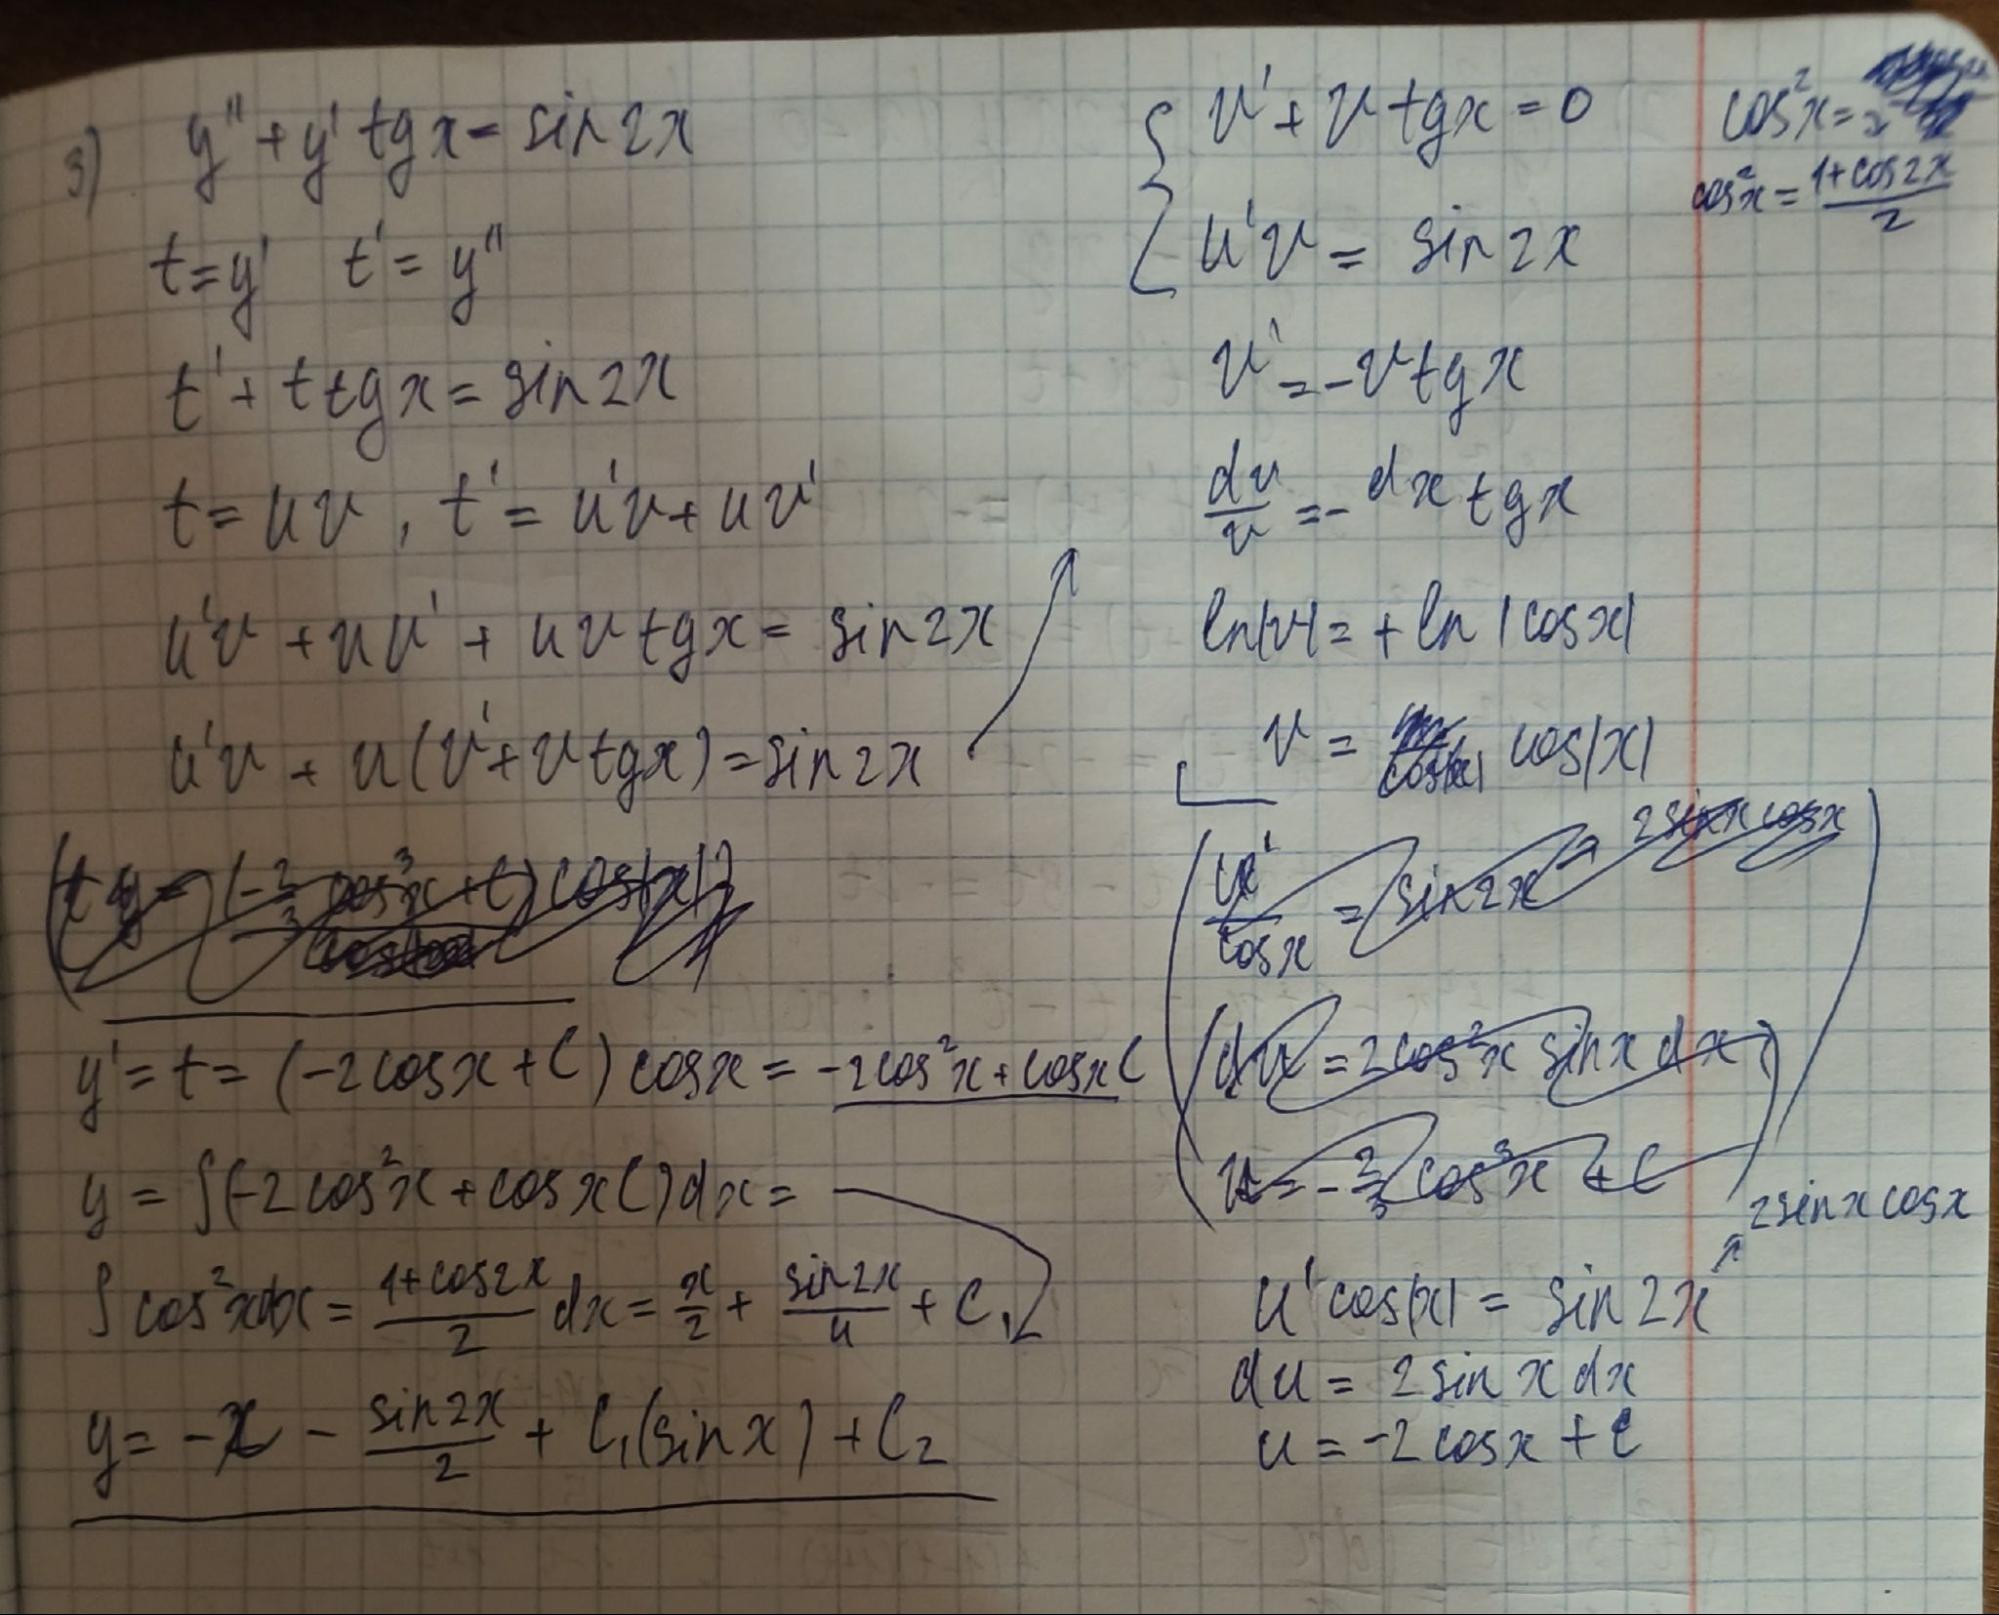 3) y'' + y' tg x = sin 2x
t = y'   t' = y''
t' + t tg x = sin 2x
t = uv , t' = u'v + uv'
u'v + uu' + uv tg x = sin 2x
u'v + u(v' + v tg x) = sin 2x
y' = t = (-2cos x + C) cos x = -2cos²x + cos x C
y = ∫(-2cos²x + cos x C)dx =
∫ cos²x dx = (1+cos 2x)/2 dx = x/2 + sin 2x/4 + C₁
y = -x - sin 2x/2 + C₁(sin x) + C₂
{ v' + v tg x = 0
u'v = sin 2x
v' = -v tg x
dv/v = - dx tg x
ln|v| = + ln |cos x|
v = cos|x|
u'/cos x = sin 2x = 2 sin x cos x
(du = 2cos²x sin x dx)
u = -2/3 cos³x + C
2 sin x cos x
u' cos|x| = sin 2x
du = 2 sin x dx
u = -2cos x + C
cos²x =
cos²x = (1+cos 2x)/2